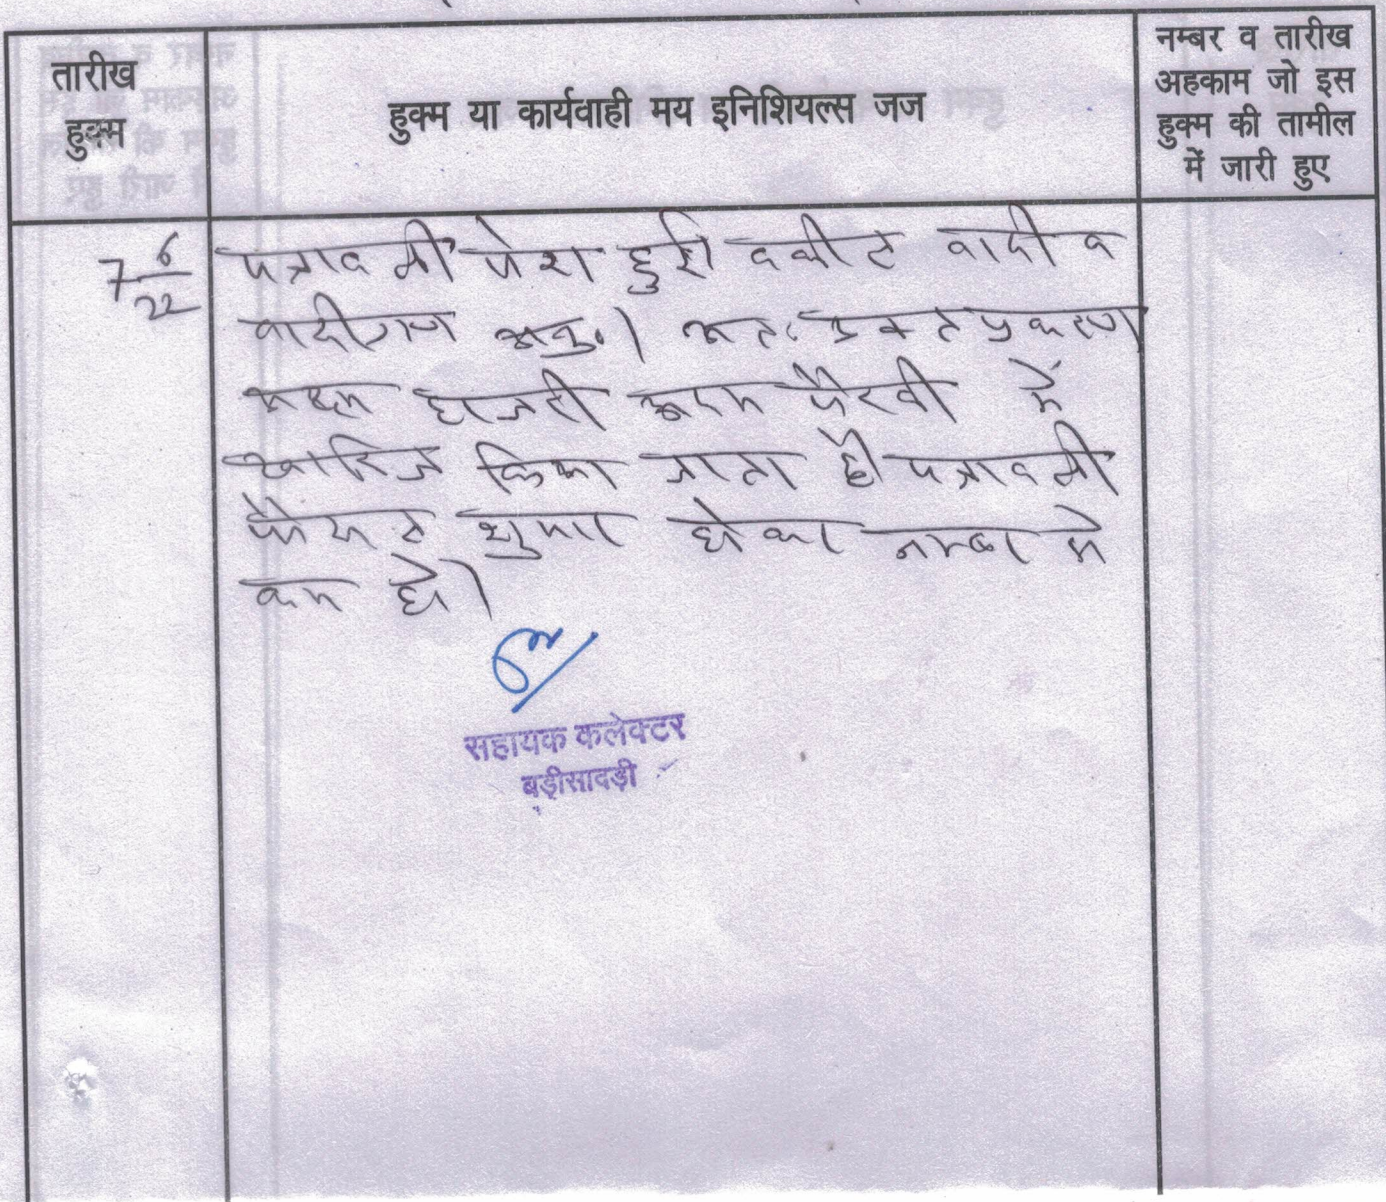 तारीख
हुक्म
हुक्म या कार्यवाही मय इनिशियल्स जज
नम्बर व तारीख
अहकाम जो इस
हुक्म की तामील
में जारी हुए
7 6/22
पत्रावली पेश हुई वकील वादी व
वादीगण अनु.। अतः उक्त प्रकरण
अदम हाजरी अदम पैरवी में
खारिज किया जाता है पत्रावली
फैसल शुमार होकर नम्बर से
कम हो।
सहायक कलेक्टर
बड़ीसादड़ी